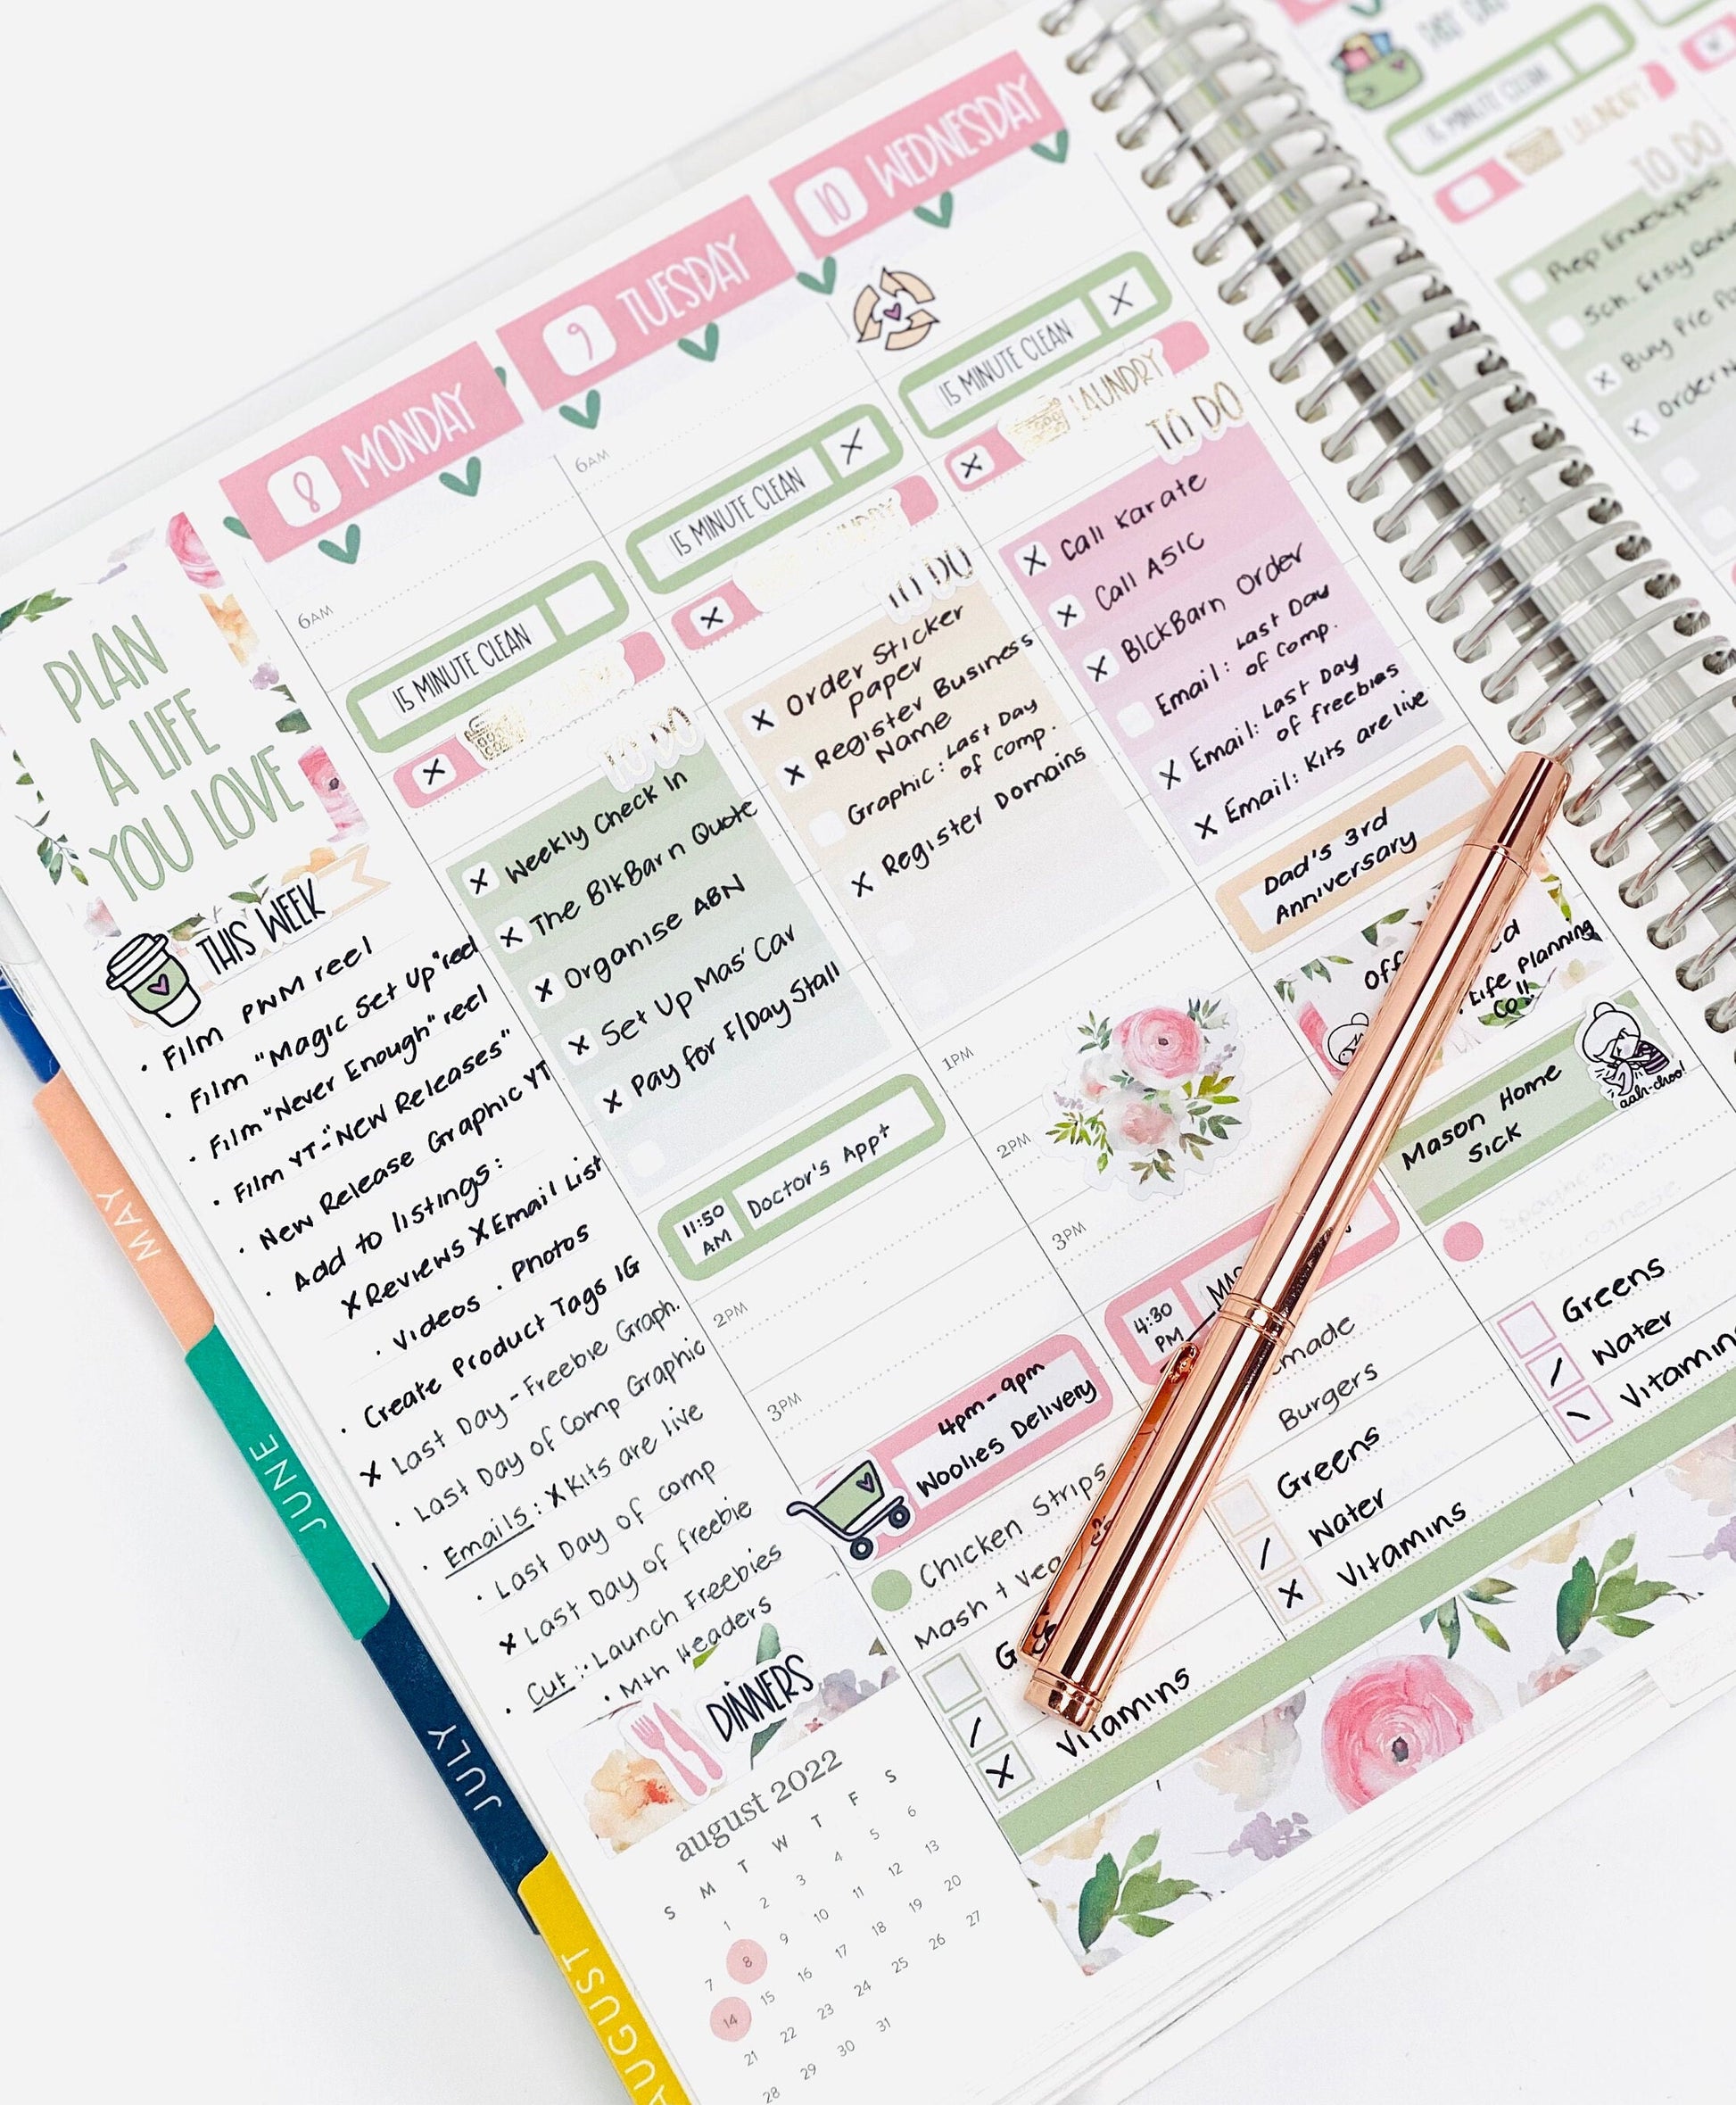 PLAN
A LIFE
YOU LOVE
THIS WEEK
· Film PWM reel
· Film "Magic Set Up" reel
· Film "Never Enough" reel
· Film YT-"NEW Releases"
· New Release Graphic YT
· Add to listings:
X Reviews X Email List
· Videos · Photos
· Create Product Tags IG
X Last Day - Freebie Graph.
· Last Day of Comp Graphic
· Emails: X Kits are live
· Last Day of comp
X Last Day of freebie
· Cut: · Launch Freebies
· Mth Headers
DINNERS
august 2022
S M T W T F S
1 2 3 4 5 6
7 8 9 10 11 12 13
14 15 16 17 18 19 20
21 22 23 24 25 26 27
28 29 30 31
8 MONDAY
6AM
15 MINUTE CLEAN
X
TO DO
X Weekly Check In
X The BlkBarn Quote
X Organise ABN
X Set Up Mas' Car
X Pay for F/Day Stall
11:50
AM
Doctor's Appt
2PM
3PM
4pm-9pm
Woolies Delivery
Chicken Strips
Mash +
/
X Vitamins
9 TUESDAY
6AM
15 MINUTE CLEAN X
X LAUNDRY
TO DO
X Order Sticker
paper
X Register Business
Name
Graphic: Last Day
of comp.
X Register Domains
1PM
2PM
3PM
4:30
PM
Burgers
Greens
/ Water
X Vitamins
10 WEDNESDAY
15 MINUTE CLEAN X
X LAUNDRY
TO DO
X Call Karate
X Call ASIC
X BlckBarn Order
Email: Last Day
of comp.
X Email: Last Day
of freebies
X Email: Kits are live
Dad's 3rd
Anniversary
Life Planning
Call
Mason Home
Sick
aah-choo!
Greens
/ Water
\ Vitamins
15 MINUTE CLEAN
LAUNDRY
TO DO
Prep Envelopes
Sch. Etsy
X Buy Pie
X Order
MAY
JUNE
JULY
AUGUST